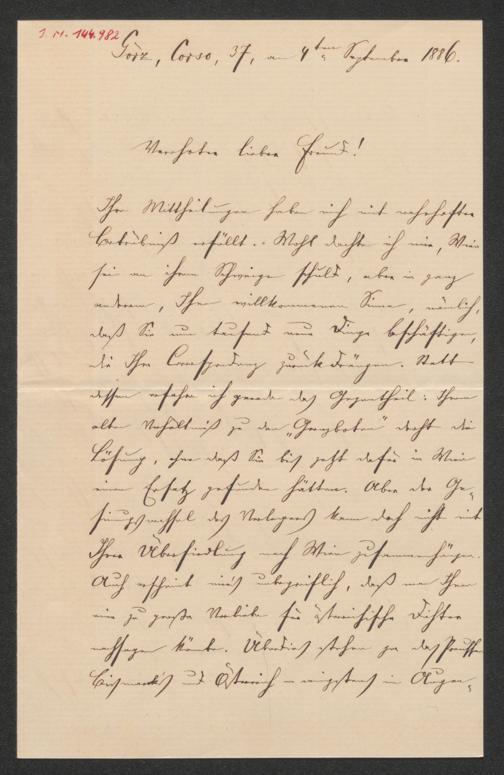 I. N. 144.982
Görz, Corso, 37, am 4ten September 1886.
Verehrter lieber Freund!
Ihre Mittheilungen haben mich mit wahrhafter
Betrübniß erfüllt. Wohl dachte ich mir, Wien
sei an ihrem Schweigen schuld, aber in ganz
anderem, Ihnen willkommenen Sinne, nämlich,
daß Sie nun tausend neue Dinge beschäftigen,
die Ihre Correspondenz zurückdrängen. Statt
dessen erfahre ich gerade das Gegentheil: Ihrem
alten Verhältniß zu den „Grenzboten" droht die
Lösung, ohne daß Sie bis jetzt dafür in Wien
einen Ersatz gefunden hätten. Aber der Ge-
sinnungswechsel des Verlegers kann doch nicht mit
Ihrer Übersiedlung nach Wien zusammenhängen.
Auch erscheint mir's unbegreiflich, daß man Ihnen
eine zu große Vorliebe für östreichische Dichter
nachsagen könnte. Überdies stehen ja das Preußen
Bismarck's und Östreich – wenigstens im Augen-